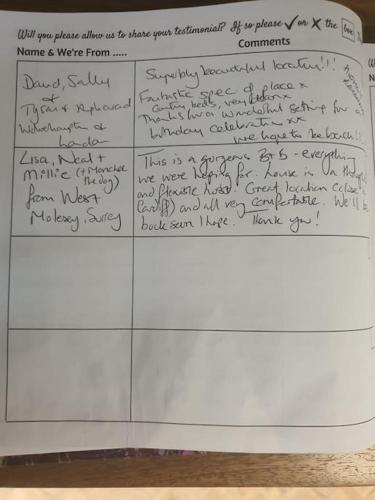 Will you please allow us to share your testimonial? If so please ✓ or ✗ the box
Name & We're From ..... Comments
David, Sally
of
Wolverhampton &
London
Superbly beautiful location!!!
Fantastic spec of place x
Comfy beds, very clean x
Thanks for a wonderful setting for a
birthday celebration xx
we hope to be back!!
Lisa, Neal +
Millie (+ Manchee
the dog)
from West
Molesey, Surrey
This is a gorgeous B+B - everything
we were hoping for. Louise is a
and flexible host. Great location (close
Cardiff) and all very comfortable. We'll be
back soon I hope. Thank you!